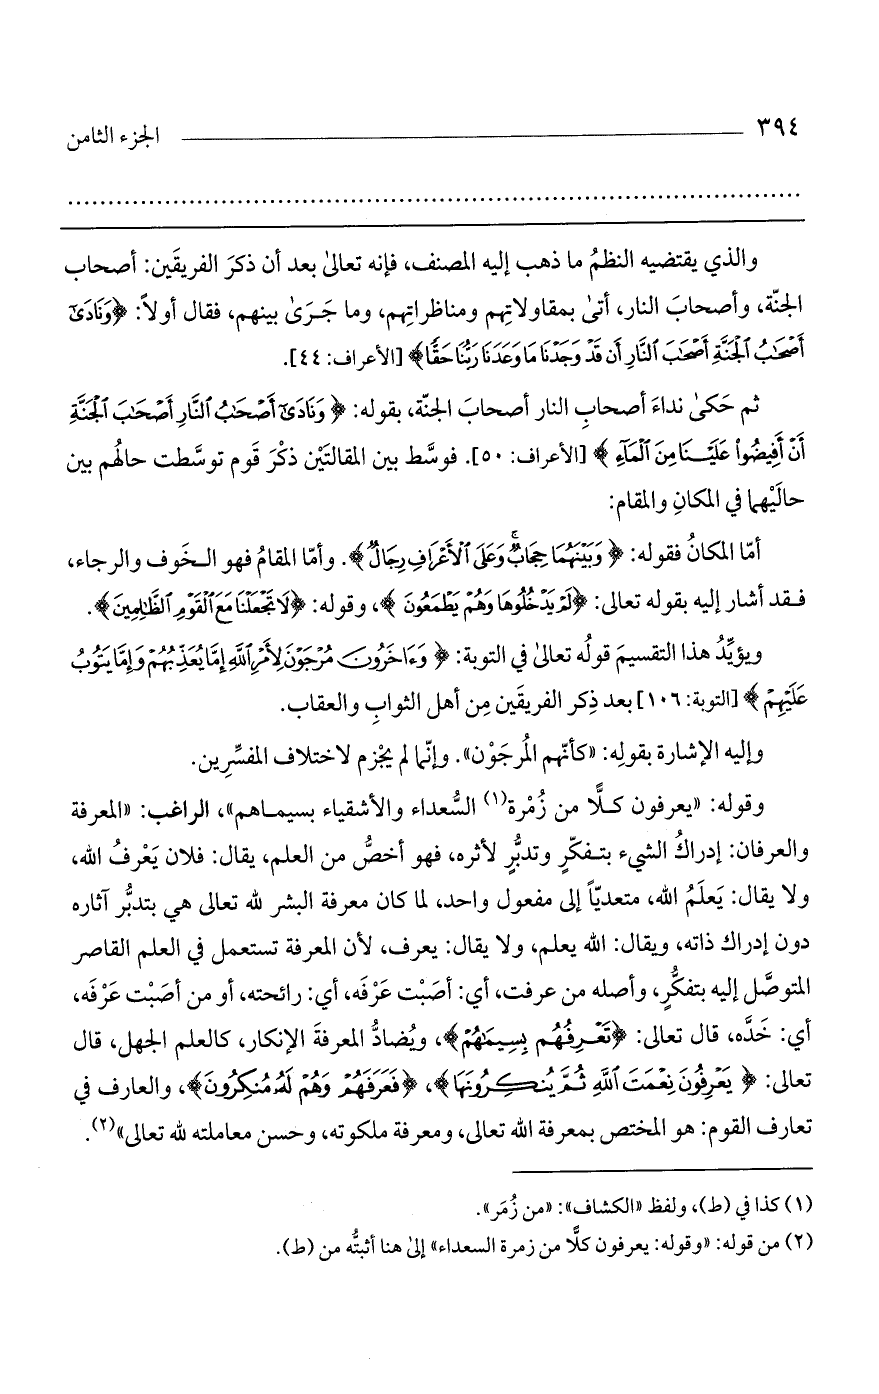 ٣٩٤ الجزء الثامن
والذي يقتضيه النظمُ ما ذهب إليه المصنف، فإنه تعالىٰ بعد أن ذكرَ الفريقَين: أصحاب
الجنّة، وأصحابَ النار، أتىٰ بمقاولاتِهم ومناظراتِهم، وما جَـرَىٰ بينهم، فقال أولاً: ﴿وَنَادَىٰٓ
أَصْحَٰبُ ٱلْجَنَّةِ أَصْحَٰبَ ٱلنَّارِ أَن قَدْ وَجَدْنَا مَا وَعَدَنَا رَبُّنَا حَقًّا﴾ [الأعراف: ٤٤].
ثم حَكىٰ نداءَ أصحابِ النار أصحابَ الجنّة، بقوله: ﴿ وَنَادَىٰٓ أَصْحَٰبُ ٱلنَّارِ أَصْحَٰبَ ٱلْجَنَّةِ
أَنْ أَفِيضُوا۟ عَلَيْـنَا مِنَ ٱلْمَآءِ ﴾ [الأعراف: ٥٠]. فوسَّط بين المقالتَيْن ذكْرَ قَوم توسَّطت حالُهم بين
حالَيْهما في المكانِ والمقام:
أمّا المكانُ فقوله: ﴿ وَبَيْنَهُمَا حِجَابٌ ۚ وَعَلَى ٱلْأَعْرَافِ رِجَالٌ ﴾. وأمّا المقامُ فهو الـخَوف والرجاء،
فـقد أشار إليه بقوله تعالى: ﴿لَمْ يَدْخُلُوهَا وَهُمْ يَطْمَعُونَ ﴾، وقوله: ﴿لَا تَجْعَلْنَا مَعَ ٱلْقَوْمِ ٱلظَّٰلِمِينَ﴾.
ويؤيِّدُ هذا التقسيمَ قولُه تعالىٰ في التوبة: ﴿ وَءَاخَرُونَ مُرْجَوْنَ لِأَمْرِ ٱللَّهِ إِمَّا يُعَذِّبُهُمْ وَإِمَّا يَتُوبُ
عَلَيْهِمْ ﴾ [التوبة: ١٠٦] بعد ذِكر الفريقَين مِن أهل الثوابِ والعقاب.
وإليه الإشارة بقولِه: «كأنّهم المُرجَوْن». وإنّما لم يجْزِم لاختلاف المفسِّرِين.
وقوله: «يعرفون كـلًّا من زُمْرة(١) السُّعداء والأشقياء بسيمـاهم»، الراغب: «المعرفة
والعرفان: إدراكُ الشيء بتـفكّرٍ وتدبُّرٍ لأثره، فهو أخصُّ من العلم، يقال: فلان يَعْرفُ الله،
ولا يقال: يَعلَمُ الله، متعديّاً إلى مفعول واحد، لما كان معرفة البشر لله تعالى هي بتدبُّر آثاره
دون إدراك ذاته، ويقال: الله يعلم، ولا يقال: يعرف، لأن المعرفة تستعمل في العلم القاصر
المتوصَّل إليه بتفكُّرٍ، وأصله من عرفت، أي: أصَبْت عَرْفَه، أي: رائحته، أو من أصَبْت عَرْفَه،
أي: خَدَّه، قال تعالى: ﴿تَعْـرِفُهُم بِسِيمَٰهُمْ﴾، ويُضادُّ المعرفةَ الإنكار، كالعلم الجهل، قال
تعالى: ﴿ يَعْرِفُونَ نِعْمَتَ ٱللَّهِ ثُـمَّ يُنكِـرُونَهَا﴾، ﴿فَعَرَفَهُمْ وَهُمْ لَهُۥ مُنكِرُونَ﴾، والعارف في
تعارف القوم: هو المختص بمعرفة الله تعالى، ومعرفة ملكوته، وحسن معاملته لله تعالى»(٢).
(١) كذا في (ط)، ولفظ «الكشاف»: «من زُمَر».
(٢) من قوله: «وقوله: يعرفون كلًّا من زمرة السعداء» إلىٰ هنا أثبتُّه من (ط).